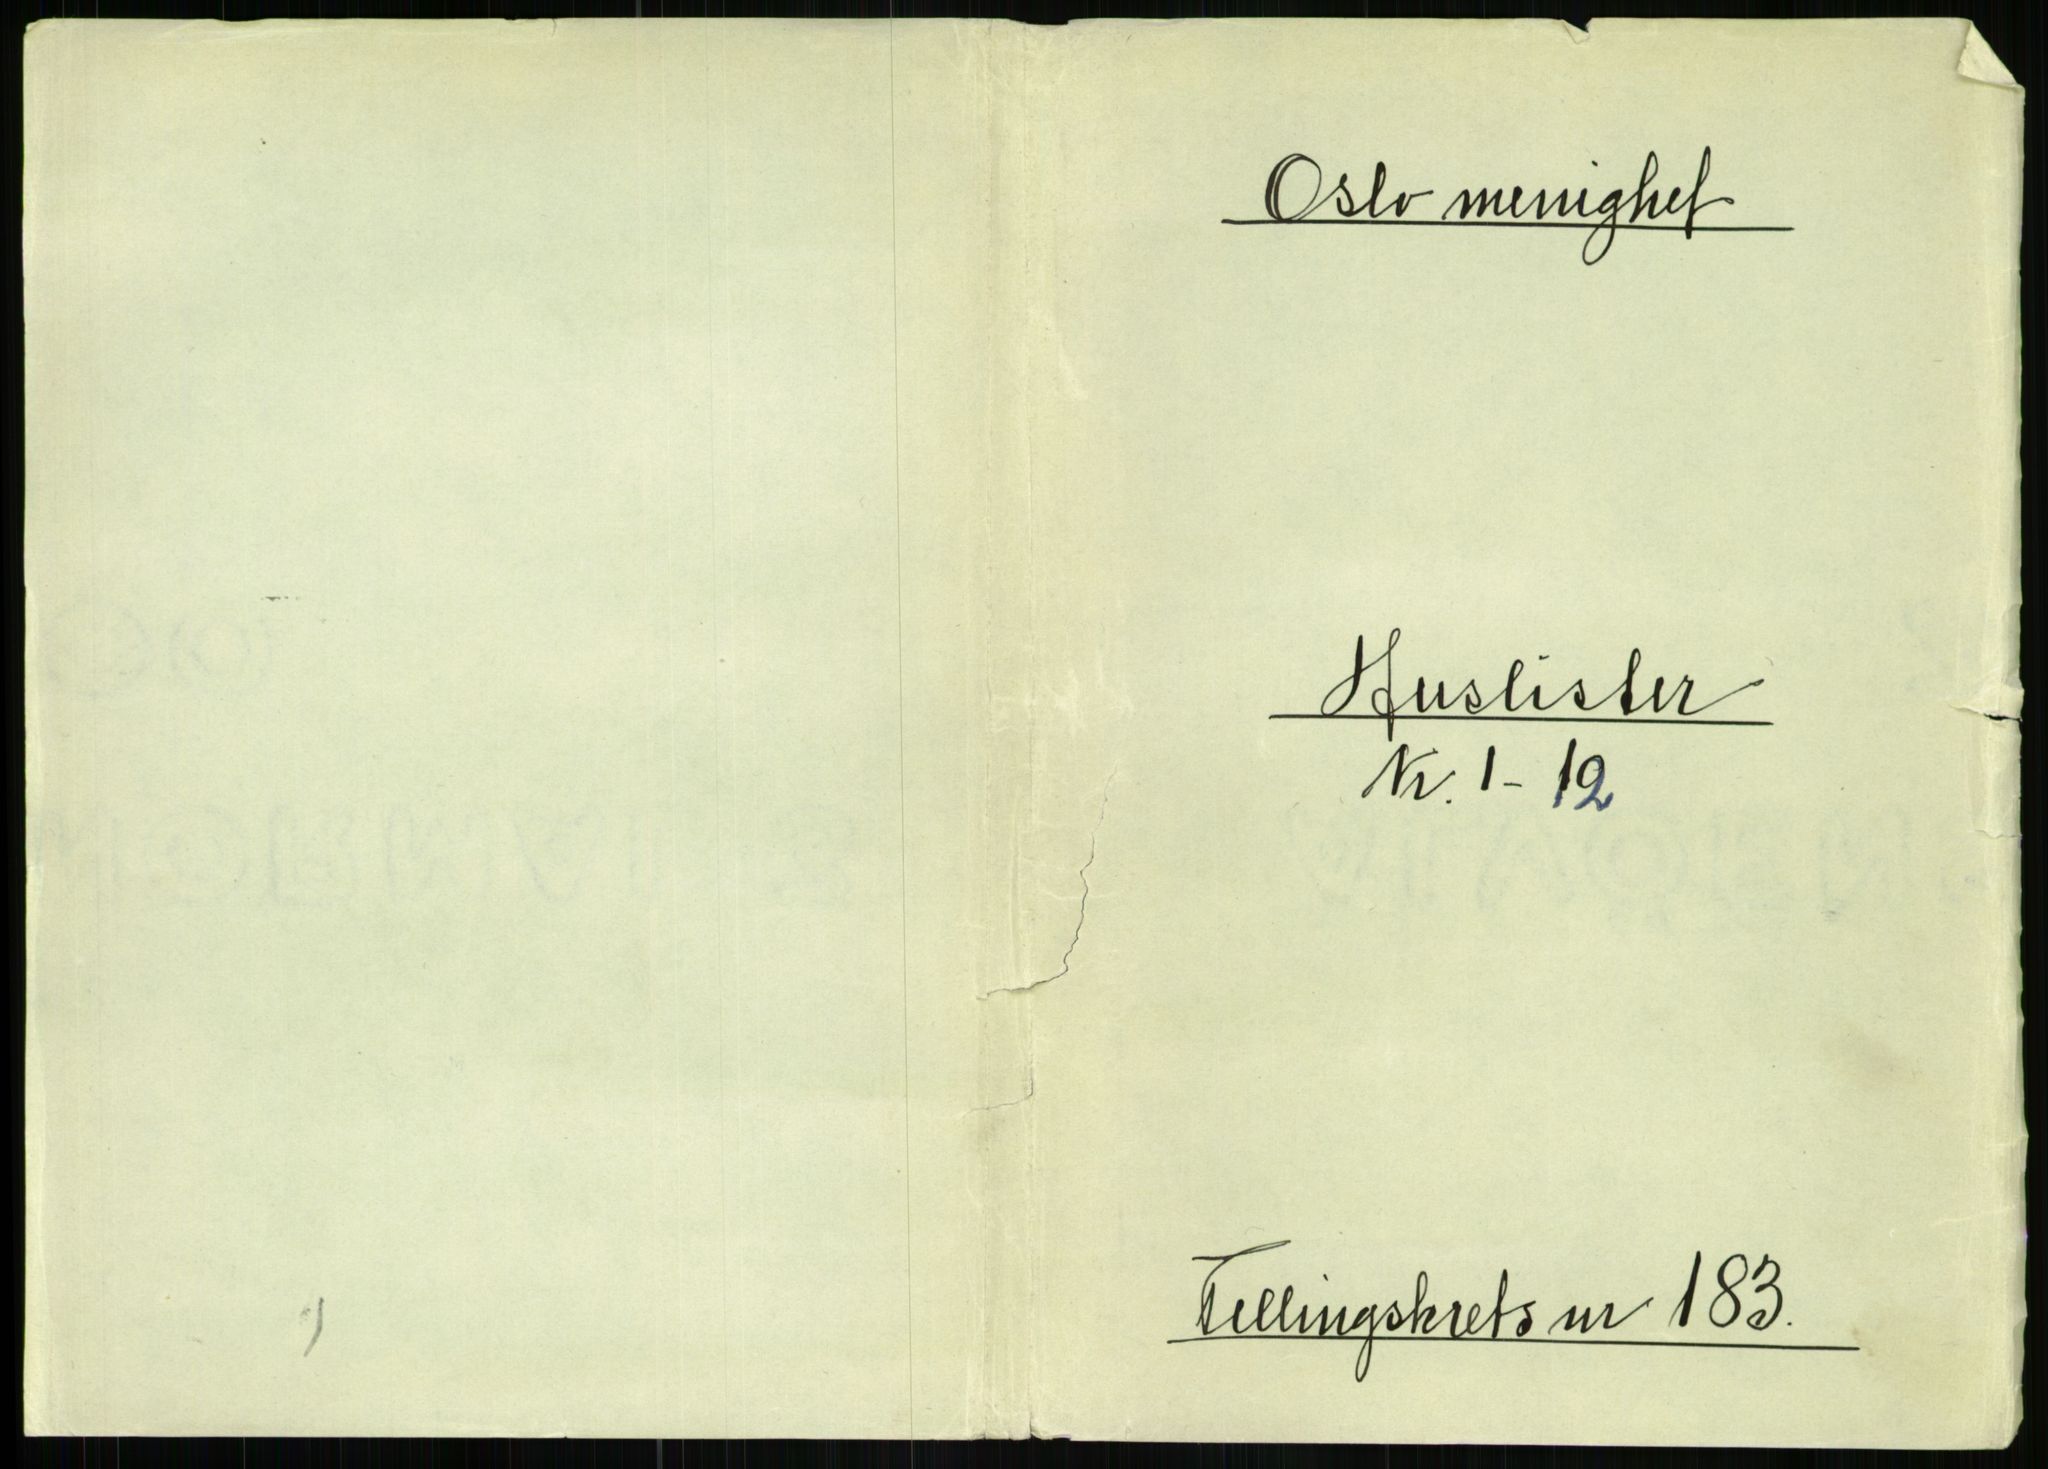 Oslo menighet
Huslister
Nr. 1-12
Tellingskrets nr 183.